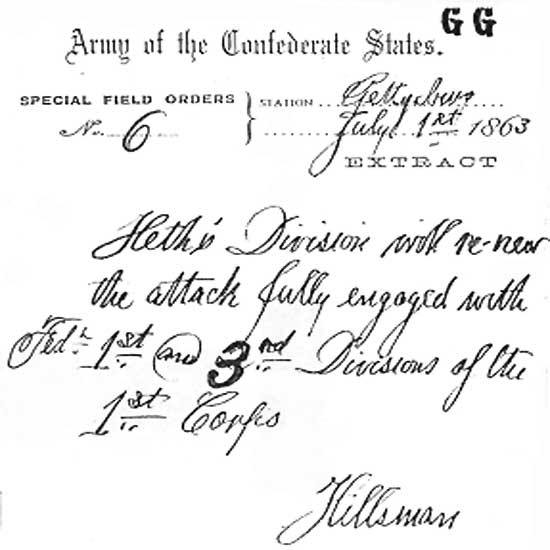 GG
Army of the Confederate States.
SPECIAL FIELD ORDERS
No. 6
STATION... Gettysburg....
........July 1st 1863
EXTRACT
Heth's Division will re-new
the attack fully engaged with
Fed. 1st and 3nd Divisions of the
1st Corps
Hillsman